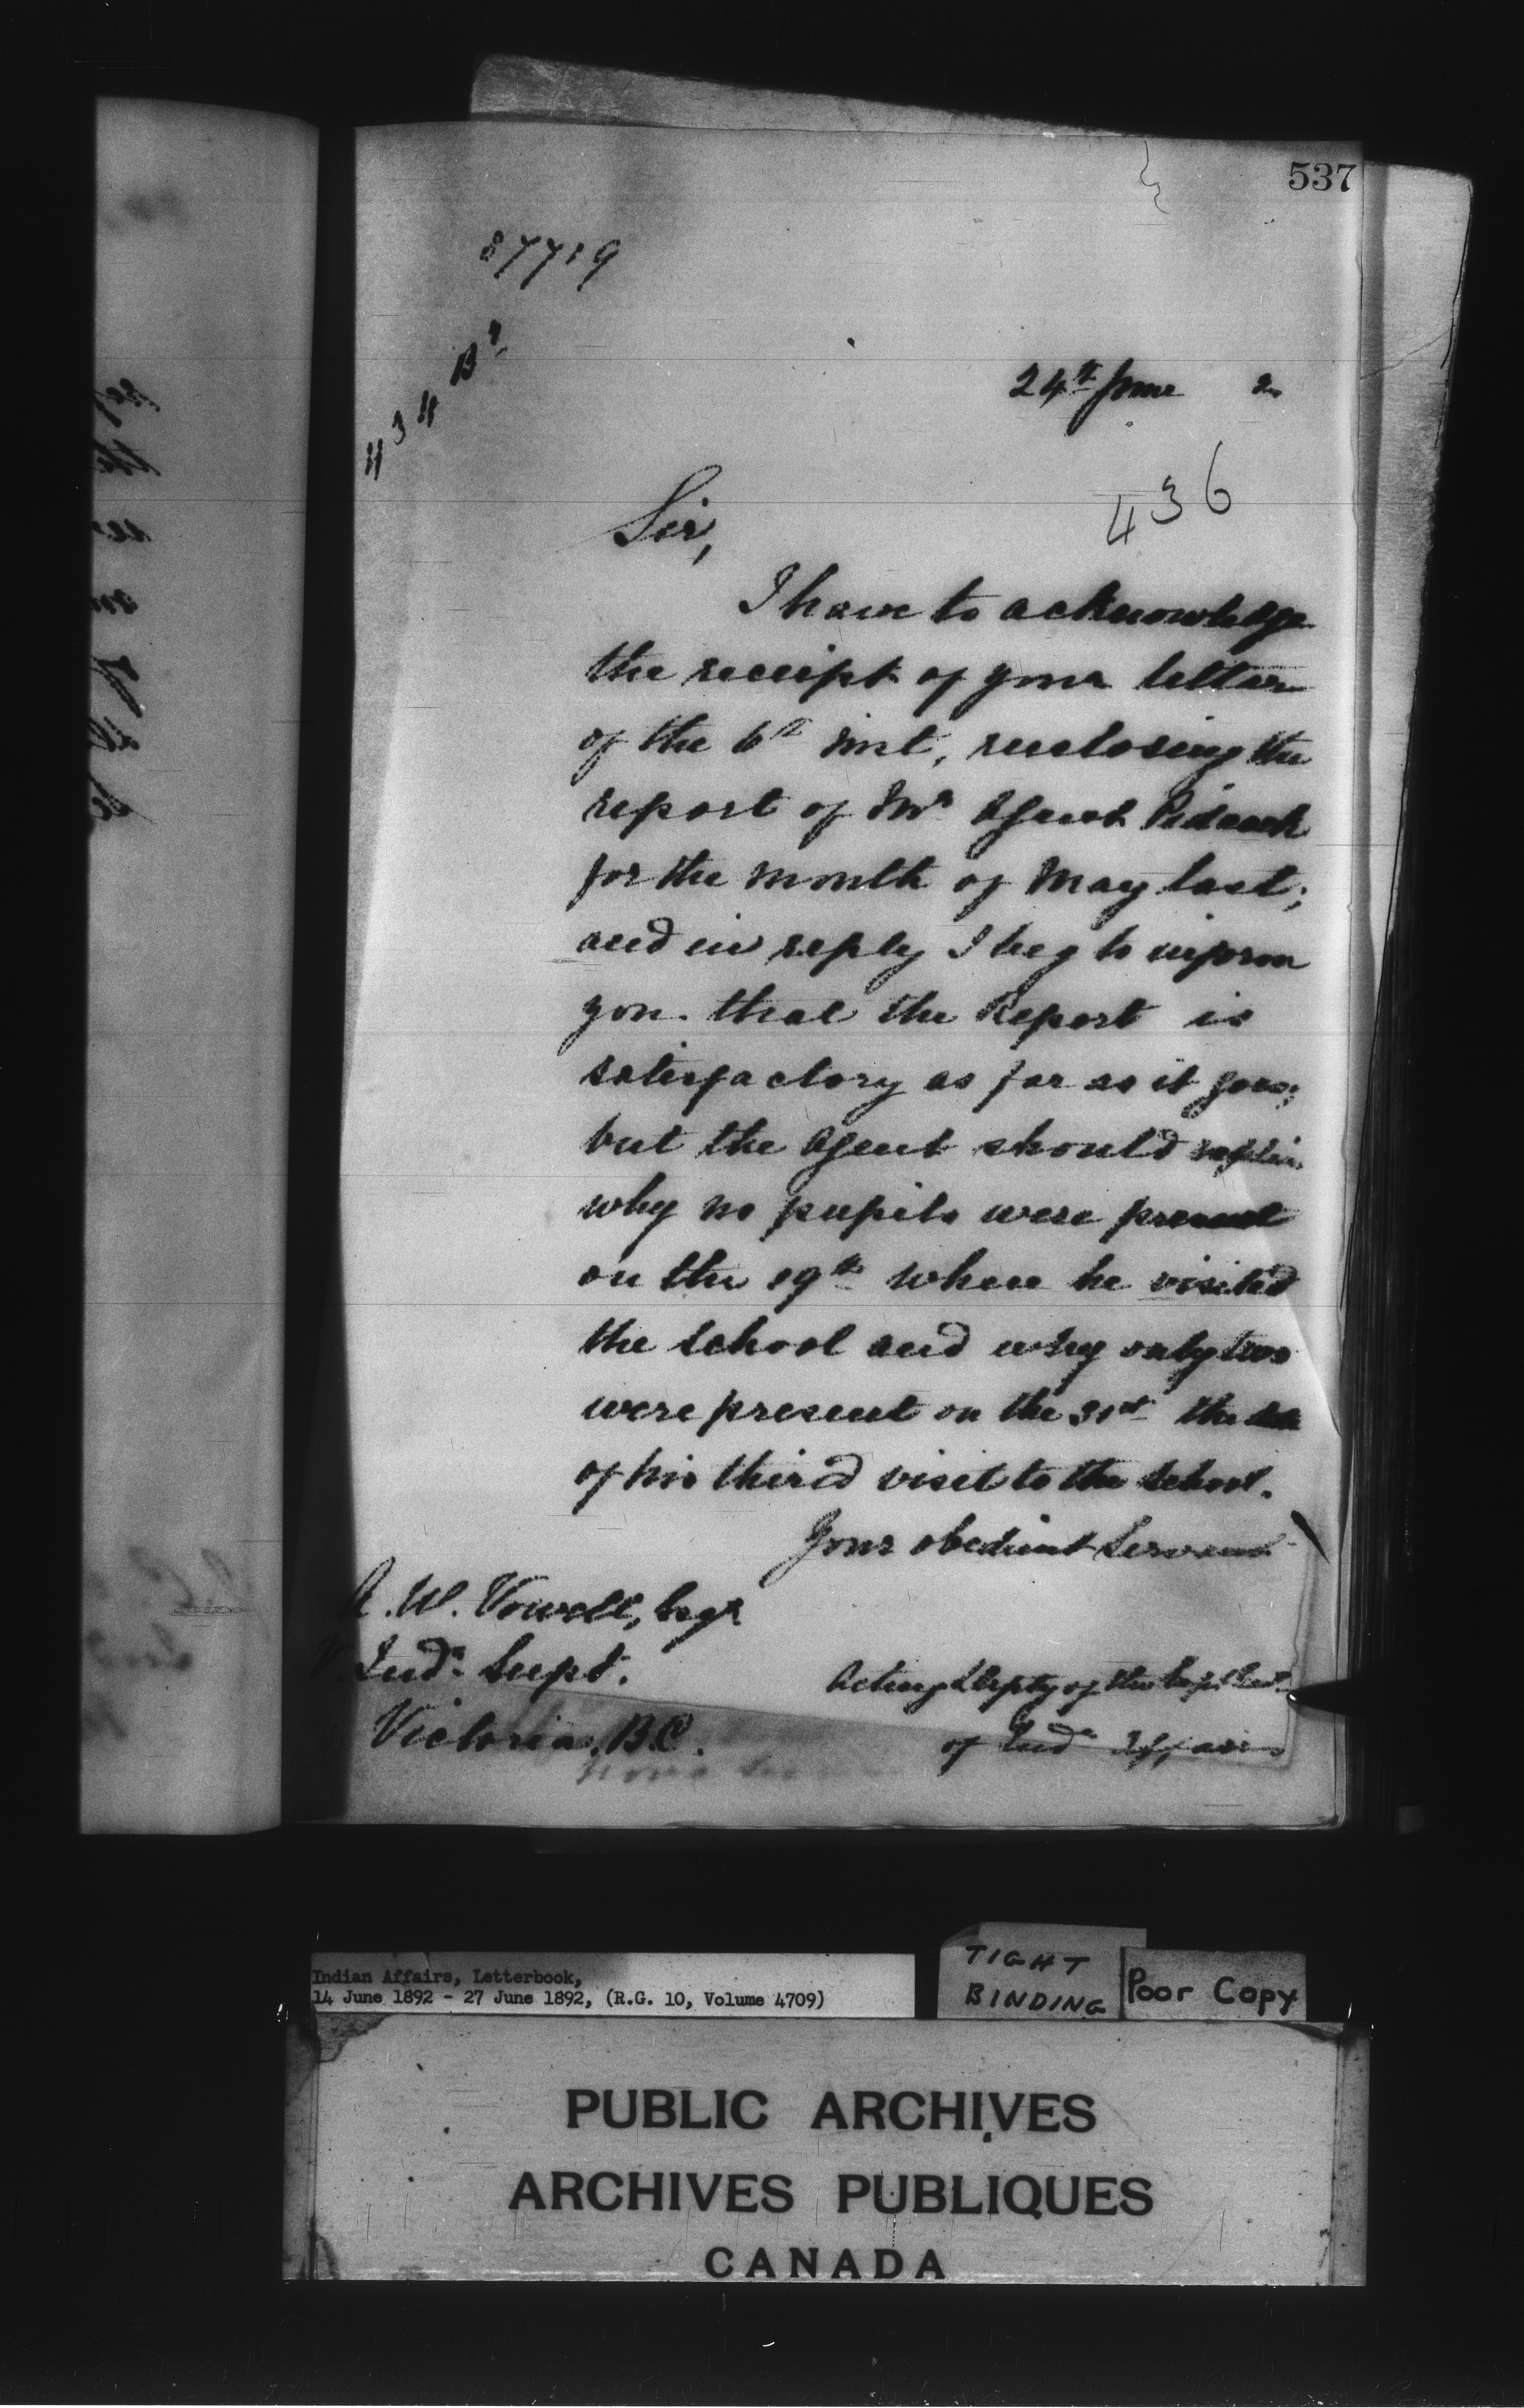 537
87719
434 B.C.
24th June 2
436
Sir,
I have to acknowledge
the receipt of your letter
of the 6th inst, enclosing the
report of Mr Agent Pidcock
for the month of May last;
and in reply I beg to inform
you that the Report is
satisfactory as far as it goes;
but the Agent should explain
why no pupils were present
on the 19th when he visited
the school and why only two
were present on the 31st the date
of his third visit to the school.
Your obedient Servant
A. W. Vowell, Esqr
Indn Supt.
Victoria, B.C.
Acting Depty of the Supt Genl
of Indn Affairs
Indian Affairs, Letterbook,
14 June 1892 - 27 June 1892, (R.G. 10, Volume 4709)
TIGHT
BINDING
Poor Copy
PUBLIC ARCHIVES
ARCHIVES PUBLIQUES
CANADA